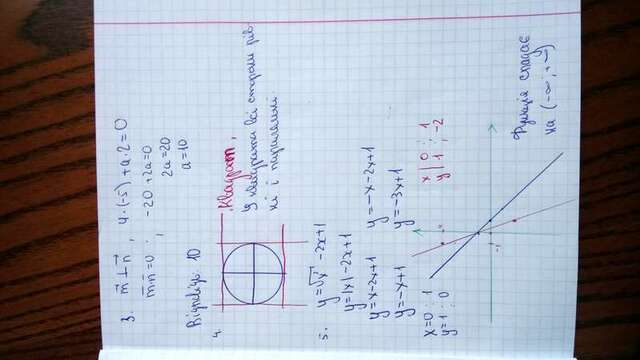 3. m⃗ ⊥ n⃗, 4·(-5) + a·2 = 0
m⃗·n⃗ = 0; -20 + 2a = 0
2a = 20
a = 10
Відповідь: 10
4.
Квадрат,
У квадрата всі сторони рів-
ні і паралельні.
5. y = √x² - 2x + 1
y = |x| - 2x + 1
y = x - 2x + 1 y = -x - 2x + 1
y = -x + 1 y = -3x + 1
x = 0 ; 1 x | 0 ; 1
y = 1 ; 0 y | 1 ; -2
-1
Функція спадає
на (-∞; +∞)